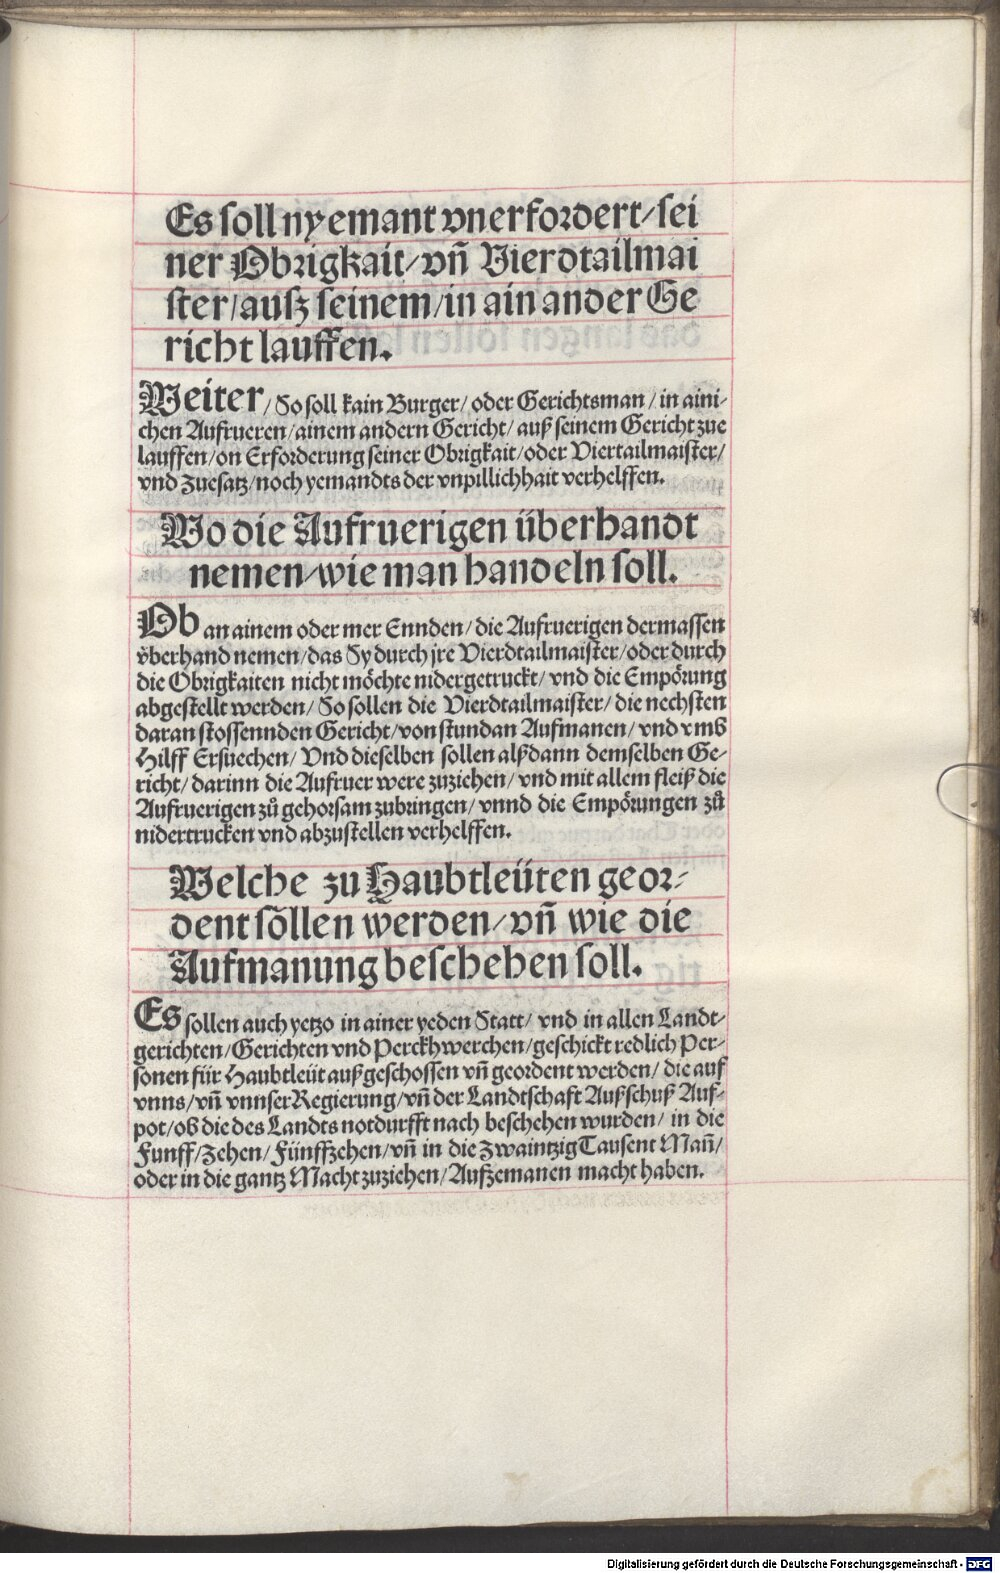 Es soll nyemant vnerfordert/sei
ner Obrigkait/vñ Vierdtailmai
ster/ausz seinem/in ain ander Ge
richt lauffen.
Weiter/So soll kain Burger/oder Gerichtsman/in aini-
chen Aufrueren/ainem andern Gericht/auß seinem Gericht zue
lauffen/on Erforderung seiner Obrigkait/oder Viertailmaister/
vnd Zuesatz/noch yemandts der vnpillichhait verhelffen.
Wo die Aufruerigen überhandt
nemen/wie man handeln soll.
Ob an ainem oder mer Ennden/die Aufruerigen dermassen
vberhand nemen/das Sy durch jre Vierdtailmaister/oder durch
die Obrigkaiten nicht möchte nidergetruckt/vnd die Empörung
abgestellt werden/So sollen die Vierdtailmaister/die nechsten
daran stossennden Gericht/von stundan Aufmanen/vnd vmb
Hilff Ersuechen/Vnd dieselben sollen alßdann demselben Ge-
richt/darinn die Aufruer were zuziehen/vnd mit allem fleiß die
Aufruerigen zů gehorsam zubringen/vnnd die Empörungen zů
nidertrucken vnd abzustellen verhelffen.
Welche zu Haubtleüten geor-
dent söllen werden/vñ wie die
Aufmanung beschehen soll.
Es sollen auch yetzo in ainer yeden Statt/vnd in allen Landt-
gerichten/Gerichten vnd Perckhwerchen/geschickt redlich Per-
sonen für Haubtleüt außgeschossen vñ geordent werden/die auf
vnns/vñ vnnser Regierung/vñ der Landtschaft Außschuß Auf-
pot/ob die des Landts notdurfft nach beschehen wurden/in die
Funff/Zehen/Fünffzehen/vñ in die Zwaintzig Tausent Mañ/
oder in die gantz Macht zuziehen/Aufzemanen macht haben.
Digitalisierung gefördert durch die Deutsche Forschungsgemeinschaft - DFG